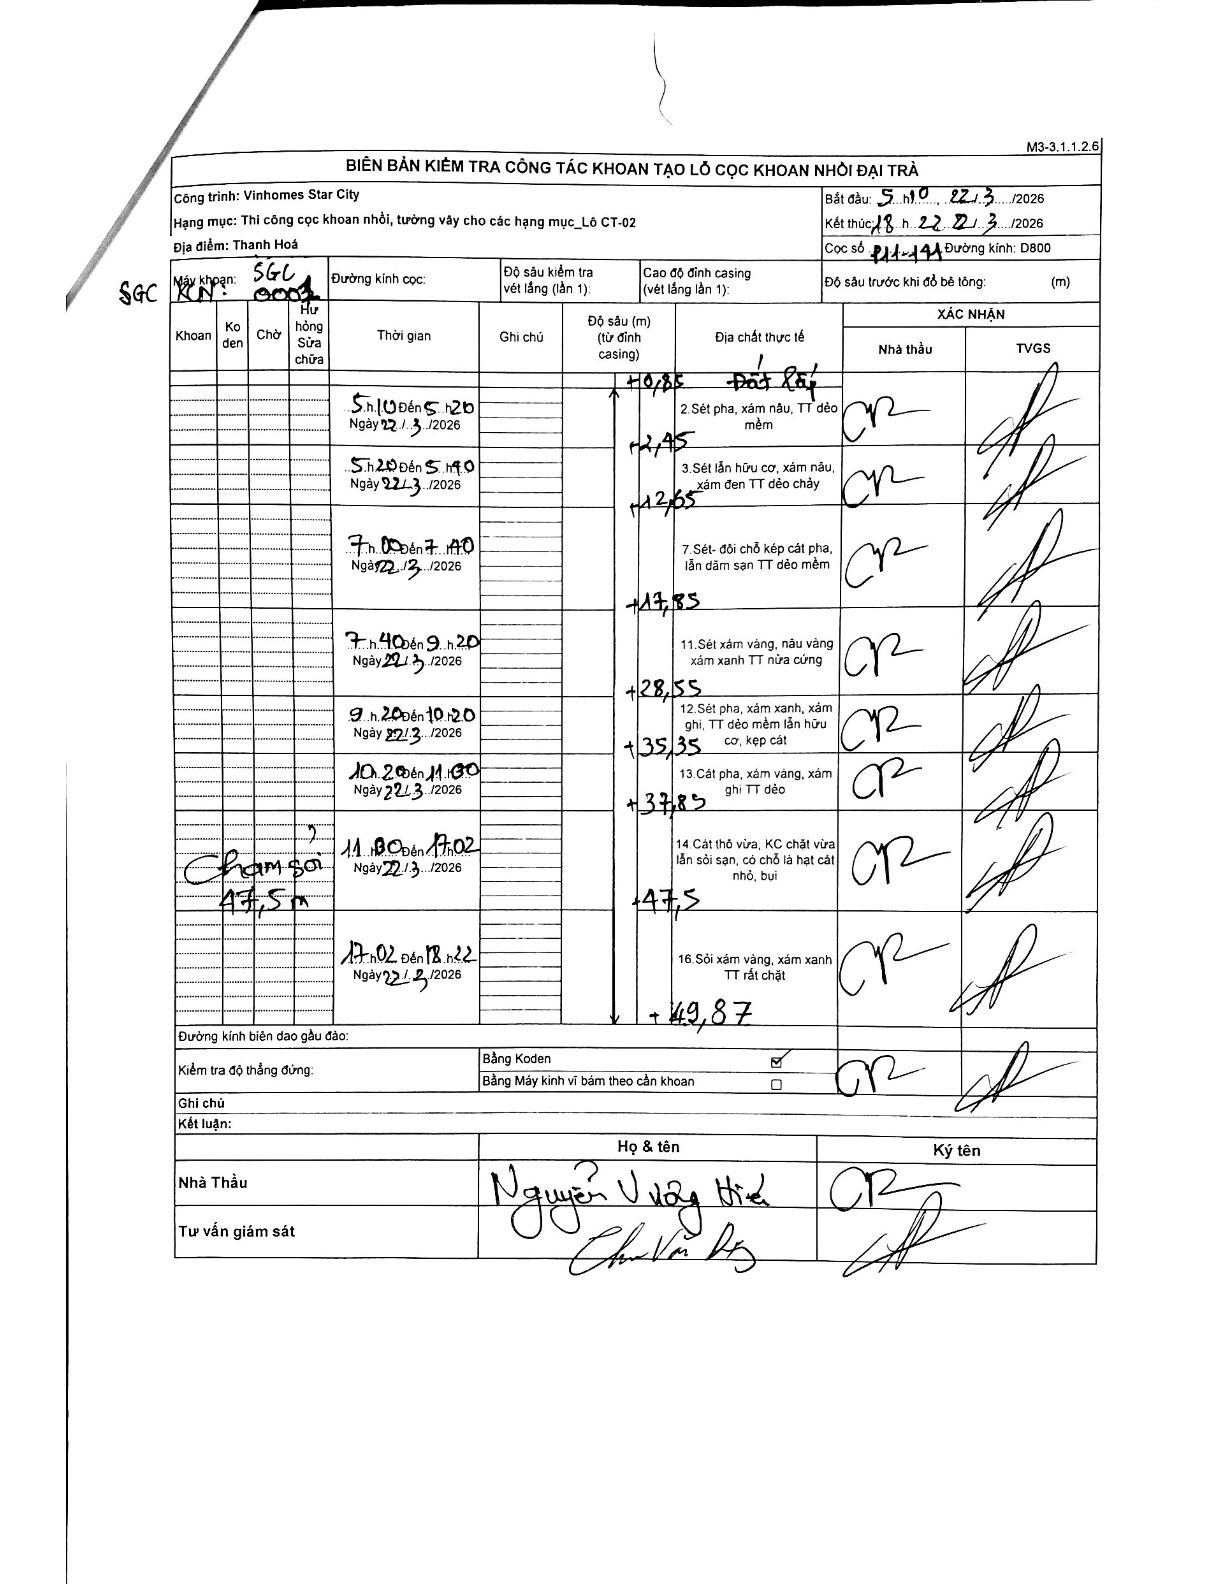 M3-3.1.1.2.6
BIÊN BẢN KIỂM TRA CÔNG TÁC KHOAN TẠO LỖ CỌC KHOAN NHỒI ĐẠI TRÀ
Công trình: Vinhomes Star City
Bắt đầu: 5 h10, 22/3/2026
Hạng mục: Thi công cọc khoan nhồi, tường vây cho các hạng mục_Lô CT-02
Kết thúc: 18 h 22 22/3/2026
Địa điểm: Thanh Hoá
Cọc số P11-141 Đường kính: D800
SGC
Máy khoan: SGC
KCN: 0001
Đường kính cọc:
Độ sâu kiểm tra vét lắng (lần 1):
Cao độ đỉnh casing (vét lắng lần 1):
Độ sâu trước khi đổ bê tông: (m)
Khoan
Ko den
Chờ
Hư hỏng Sửa chữa
Thời gian
Ghi chú
Độ sâu (m) (từ đỉnh casing)
Địa chất thực tế
XÁC NHẬN
Nhà thầu
TVGS
+0,85 Đất lấp
5.h.10 Đến 5 h20
Ngày 22/3/2026
2.Sét pha, xám nâu, TT dẻo mềm
+2,45
5.h20 Đến 5 h40
Ngày 22/3/2026
3.Sét lẫn hữu cơ, xám nâu, xám đen TT dẻo chảy
+12,65
7.h.00 Đến 7 h40
Ngày 22/3/2026
7.Sét- đôi chỗ kép cát pha, lẫn dăm sạn TT dẻo mềm
+17,85
7 h40 Đến 9 h.20
Ngày 22/3/2026
11.Sét xám vàng, nâu vàng xám xanh TT nửa cứng
+28,55
9.h.20 Đến 10 h20
Ngày 22/3/2026
12.Sét pha, xám xanh, xám ghi, TT dẻo mềm lẫn hữu cơ, kẹp cát
+35,35
10h.20 Đến 11 h30
Ngày 22/3/2026
13.Cát pha, xám vàng, xám ghi TT dẻo
+37,85
Chạm sỏi
47,5 m
11 h30 Đến 17h02
Ngày 22/3/2026
14.Cát thô vừa, KC chặt vừa lẫn sỏi sạn, có chỗ là hạt cát nhỏ, bụi
+47,5
17h02 Đến 18 h22
Ngày 22/3/2026
16.Sỏi xám vàng, xám xanh TT rất chặt
+ 49,87
Đường kính biên dao gầu đào:
Kiểm tra độ thẳng đứng:
Bằng Koden ☑
Bằng Máy kinh vĩ bám theo cần khoan ☐
Ghi chú
Kết luận:
Họ & tên
Ký tên
Nhà Thầu
Nguyễn Vương Hiếu
Tư vấn giám sát
Chu Văn